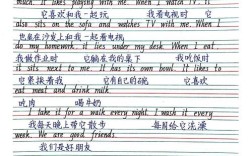 much. It likes playing with me. When I watch TV. It
它喜欢和我一起玩 我看电视时 它
also sits on the sofa and watches TV with me. When I
也坐在沙发上和我一起看电视
do my homework. it lies under my desk. When I eat.
我做作业时 它躺在我的桌下 我吃饭时
it sits next to me. It has its own bowl. It likes to
它紧挨着我 它有自己的碗 它喜欢
eat meat and drink milk.
吃肉 喝牛奶
I take it for a walk every night. I wash it every
我每天晚上带它散步 每周给它洗澡
week. We are good friends.
我们是好朋友